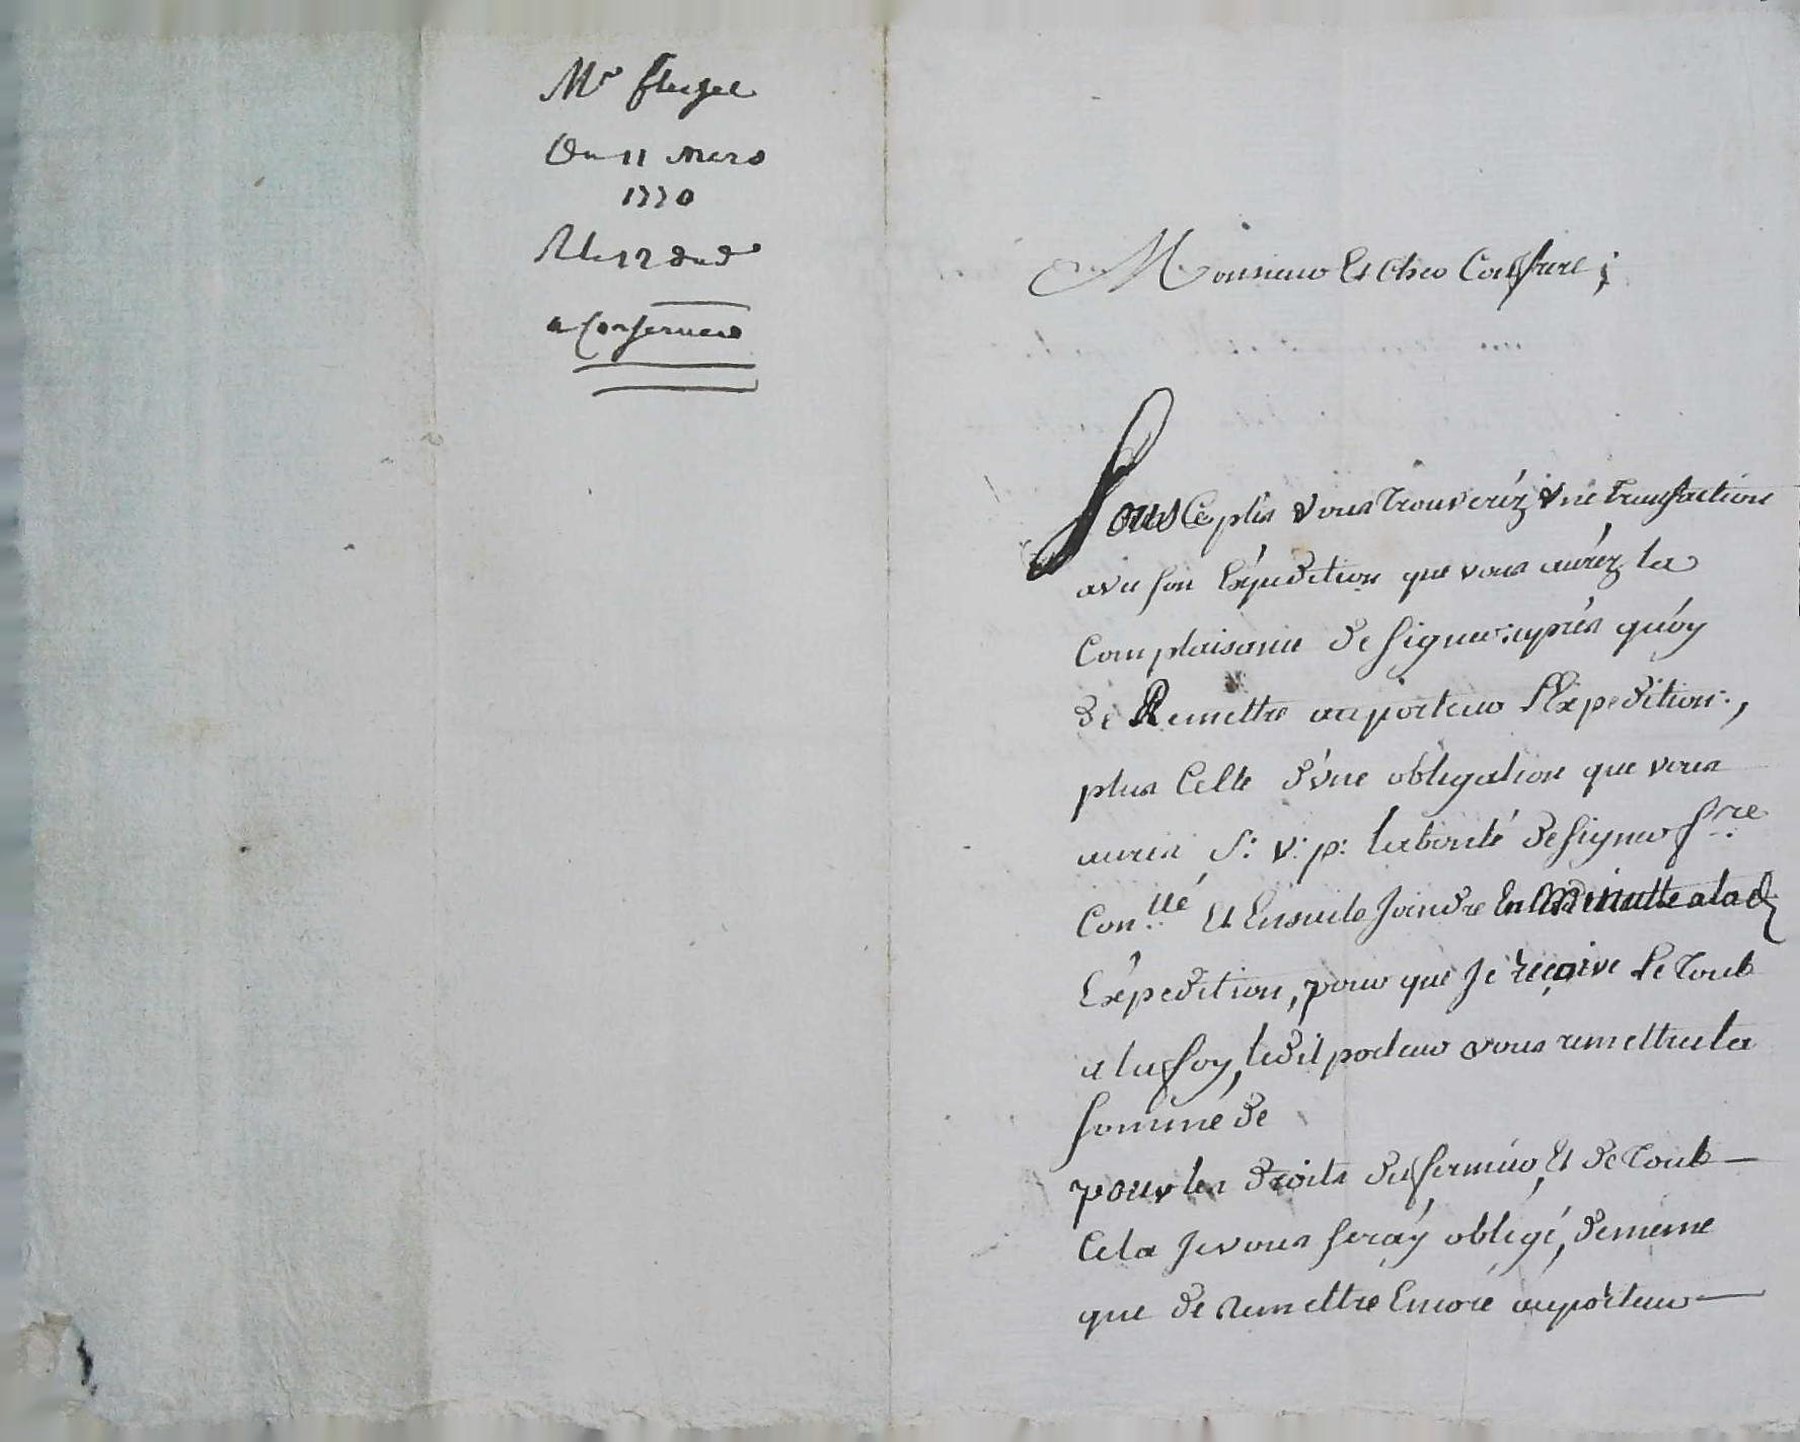 Mr
Du 11 Mars
1770
R le 12 dud
a Conserver
Monsieur Et Cher Confrere ;
Sous Ce plis vous trouveréz une transaction
avec son Expedition que vous auréz la
Complaisance de signer, après quóy
de Remettre au porteur l'Expedition,
plus Celle d'une obligation que vous
aurez S: v: p: la bonté de signer
Con.llé Et Ensuite Joindre la Minutte a la d
Expedition, pour que Je reçoive le tout
a la foy, ledit porteur vous remettra la
somme de
pour les droits du fermier, Et de tout
Cela Je vous seráy obligé, de meme
que de remettre Encore au porteur